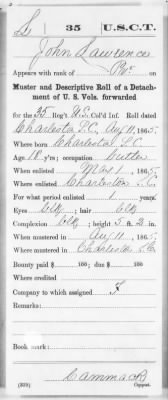 L 35 U.S.C.T.
John Lawrence
Appears with rank of Pvt. on
Muster and Descriptive Roll of a Detach-
ment of U. S. Vols. forwarded
for the 35 Reg't U.S. Col'd Inf. Roll dated
Charleston S.C. Aug 11, 1865.
Where born Charleston S.C.
Age 18 y'rs; occupation
When enlisted Mar 1, 1865.
Where enlisted Charleston S.C.
For what period enlisted 1 years.
Eyes blk; hair blk
Complexion blk; height 5 ft. 2 in.
When mustered in Aug 11, 1865.
Where mustered in Charleston S.C.
Bounty paid $ 100; due $ 100
Where credited
Company to which assigned F
Remarks:
Book mark:
Cammack
(339) Copyist.